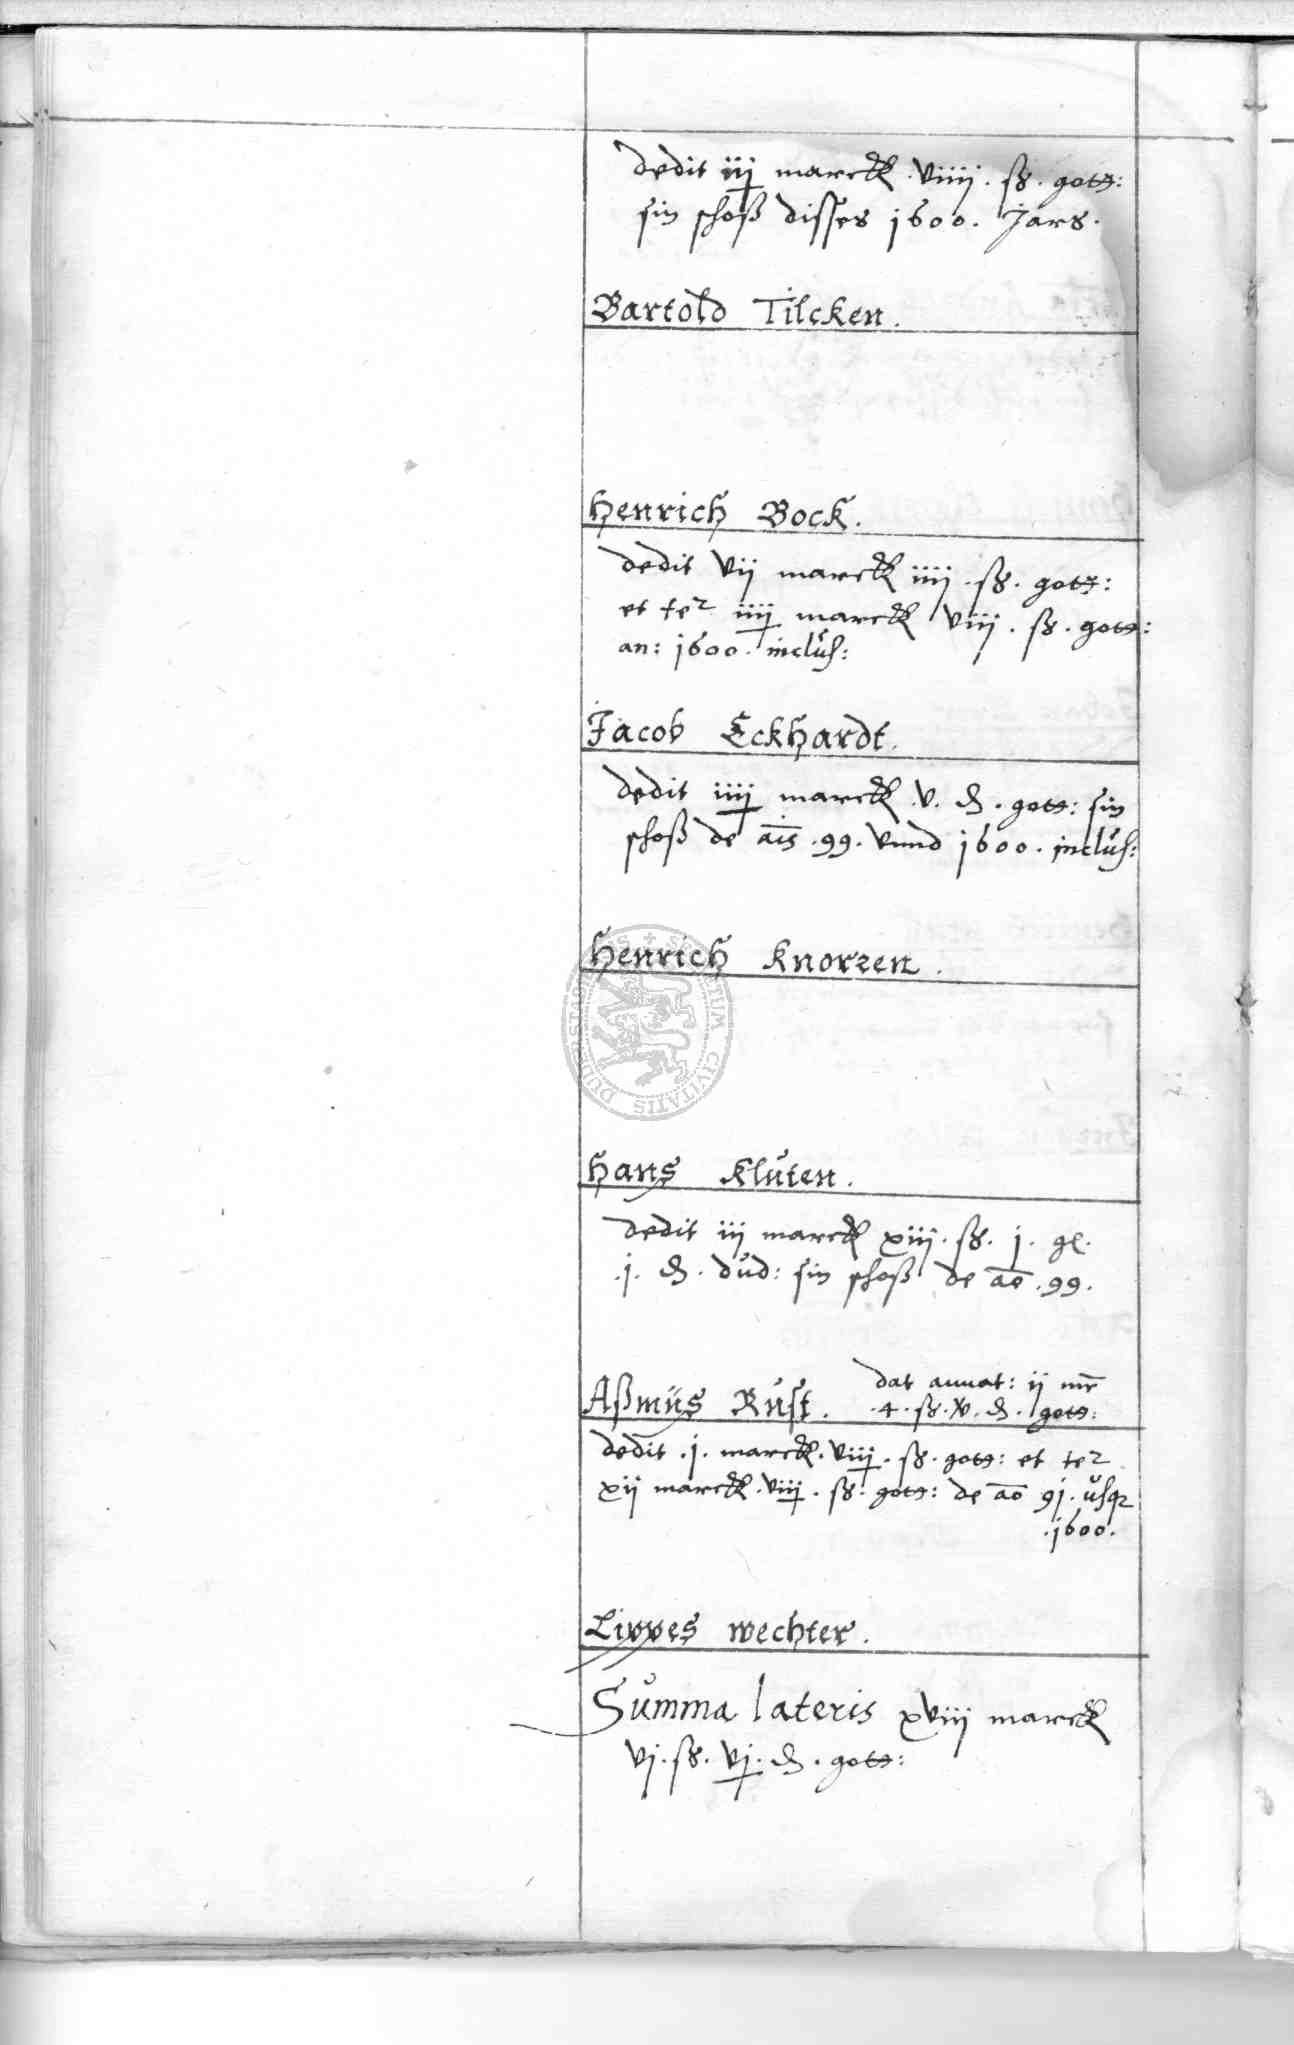 dedit iij marck . viiij . ß . gott:
sin schoß disses 1600. Jars.
Bartold Tilcken.
Henrich Bock.
dedit vij marck iiij . ß . gott:
et ter iiij marck viij . ß . gott:
an: 1600. inclus:
Jacob Eckhardt.
dedit iiij marck .v. ₰ . gott: sin
schoß de ais .99. vnnd 1600. inclus:
Henrich Knorzen.
Hans Kluten.
dedit iij marck xiij. ß. j. gl.
.j. ₰. dud: sin schoß de ao .99.
Aßmus Rust. dat annat: ij mr
.4. ß. v. ₰. gott:
dedit .j. marck. viij. ß. gott: et ter
xij marck. viij. ß. gott: de ao 9j. usq
.1600.
Lippes wechter.
Summa lateris xviij marck
vj. ß. vj. ₰. gott:
SECRETUM CIVITATIS DUDERSTADENSIS